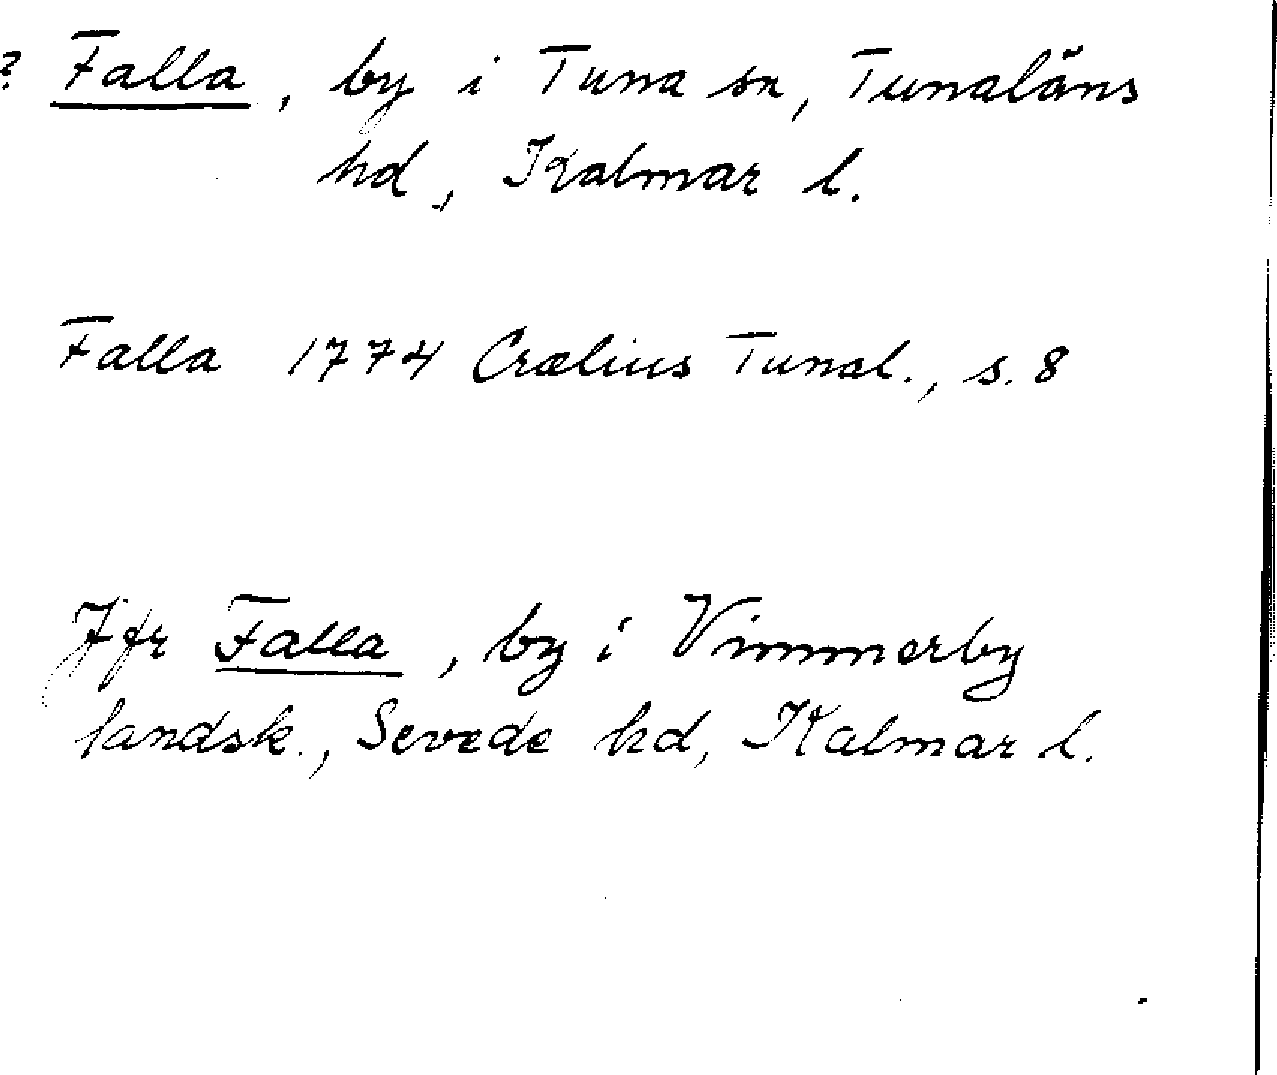 ? Falla, by i Tuna sn, Tunaläns
hd, Kalmar l.
Falla 1774 Crælius Tunal., s. 8
Jfr Falla, by i Vimmerby
landsk., Sevede hd, Kalmar l.